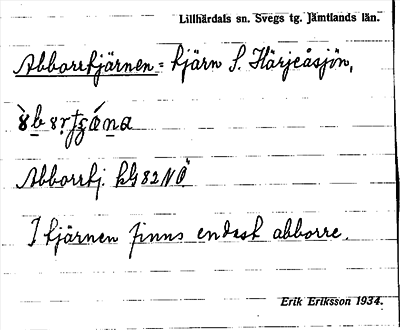 Lillhärdals sn. Svegs tg. Jämtlands län.
Abborrtjärnen = tjärn S. Härjeåsjön,
Abborrtj. kbl 82 NÖ
I tjärnen finns endast abborre.
Erik Eriksson 1934.